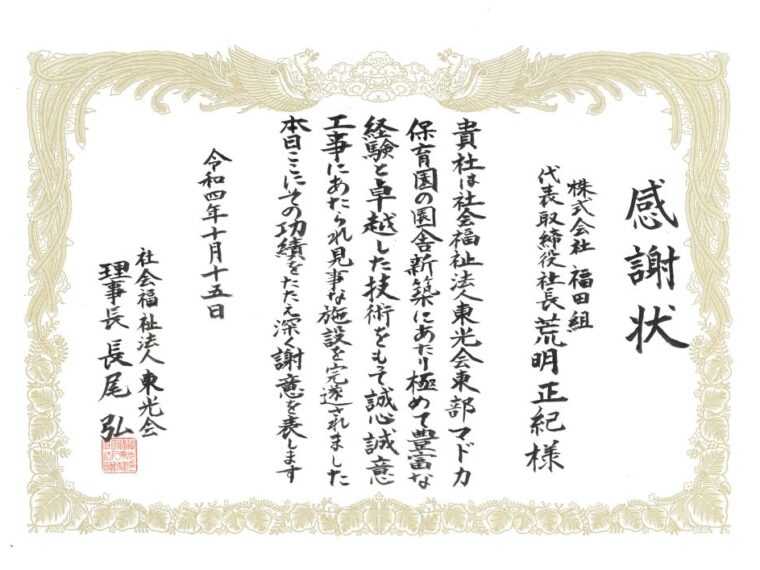 感謝状
株式会社 福田組
代表取締役社長 荒明正紀様
貴社は社会福祉法人東光会東部マドカ
保育園の園舎新築にあたり極めて豊富な
経験と卓越した技術をもって誠心誠意
工事にあたられ見事な施設を完遂されました
本日ここにその功績をたたえ深く謝意を表します
令和四年十月十五日
社会福祉法人 東光会
理事長 長尾 弘